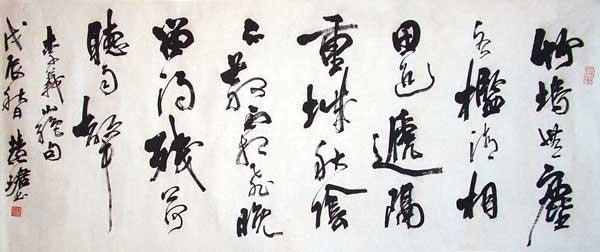 竹塢無塵
水檻清相
思迢遞隔
重城秋陰
不散霜飛晚
留得殘荷
聽雨聲
李義山絕句
戊辰秋日 黃